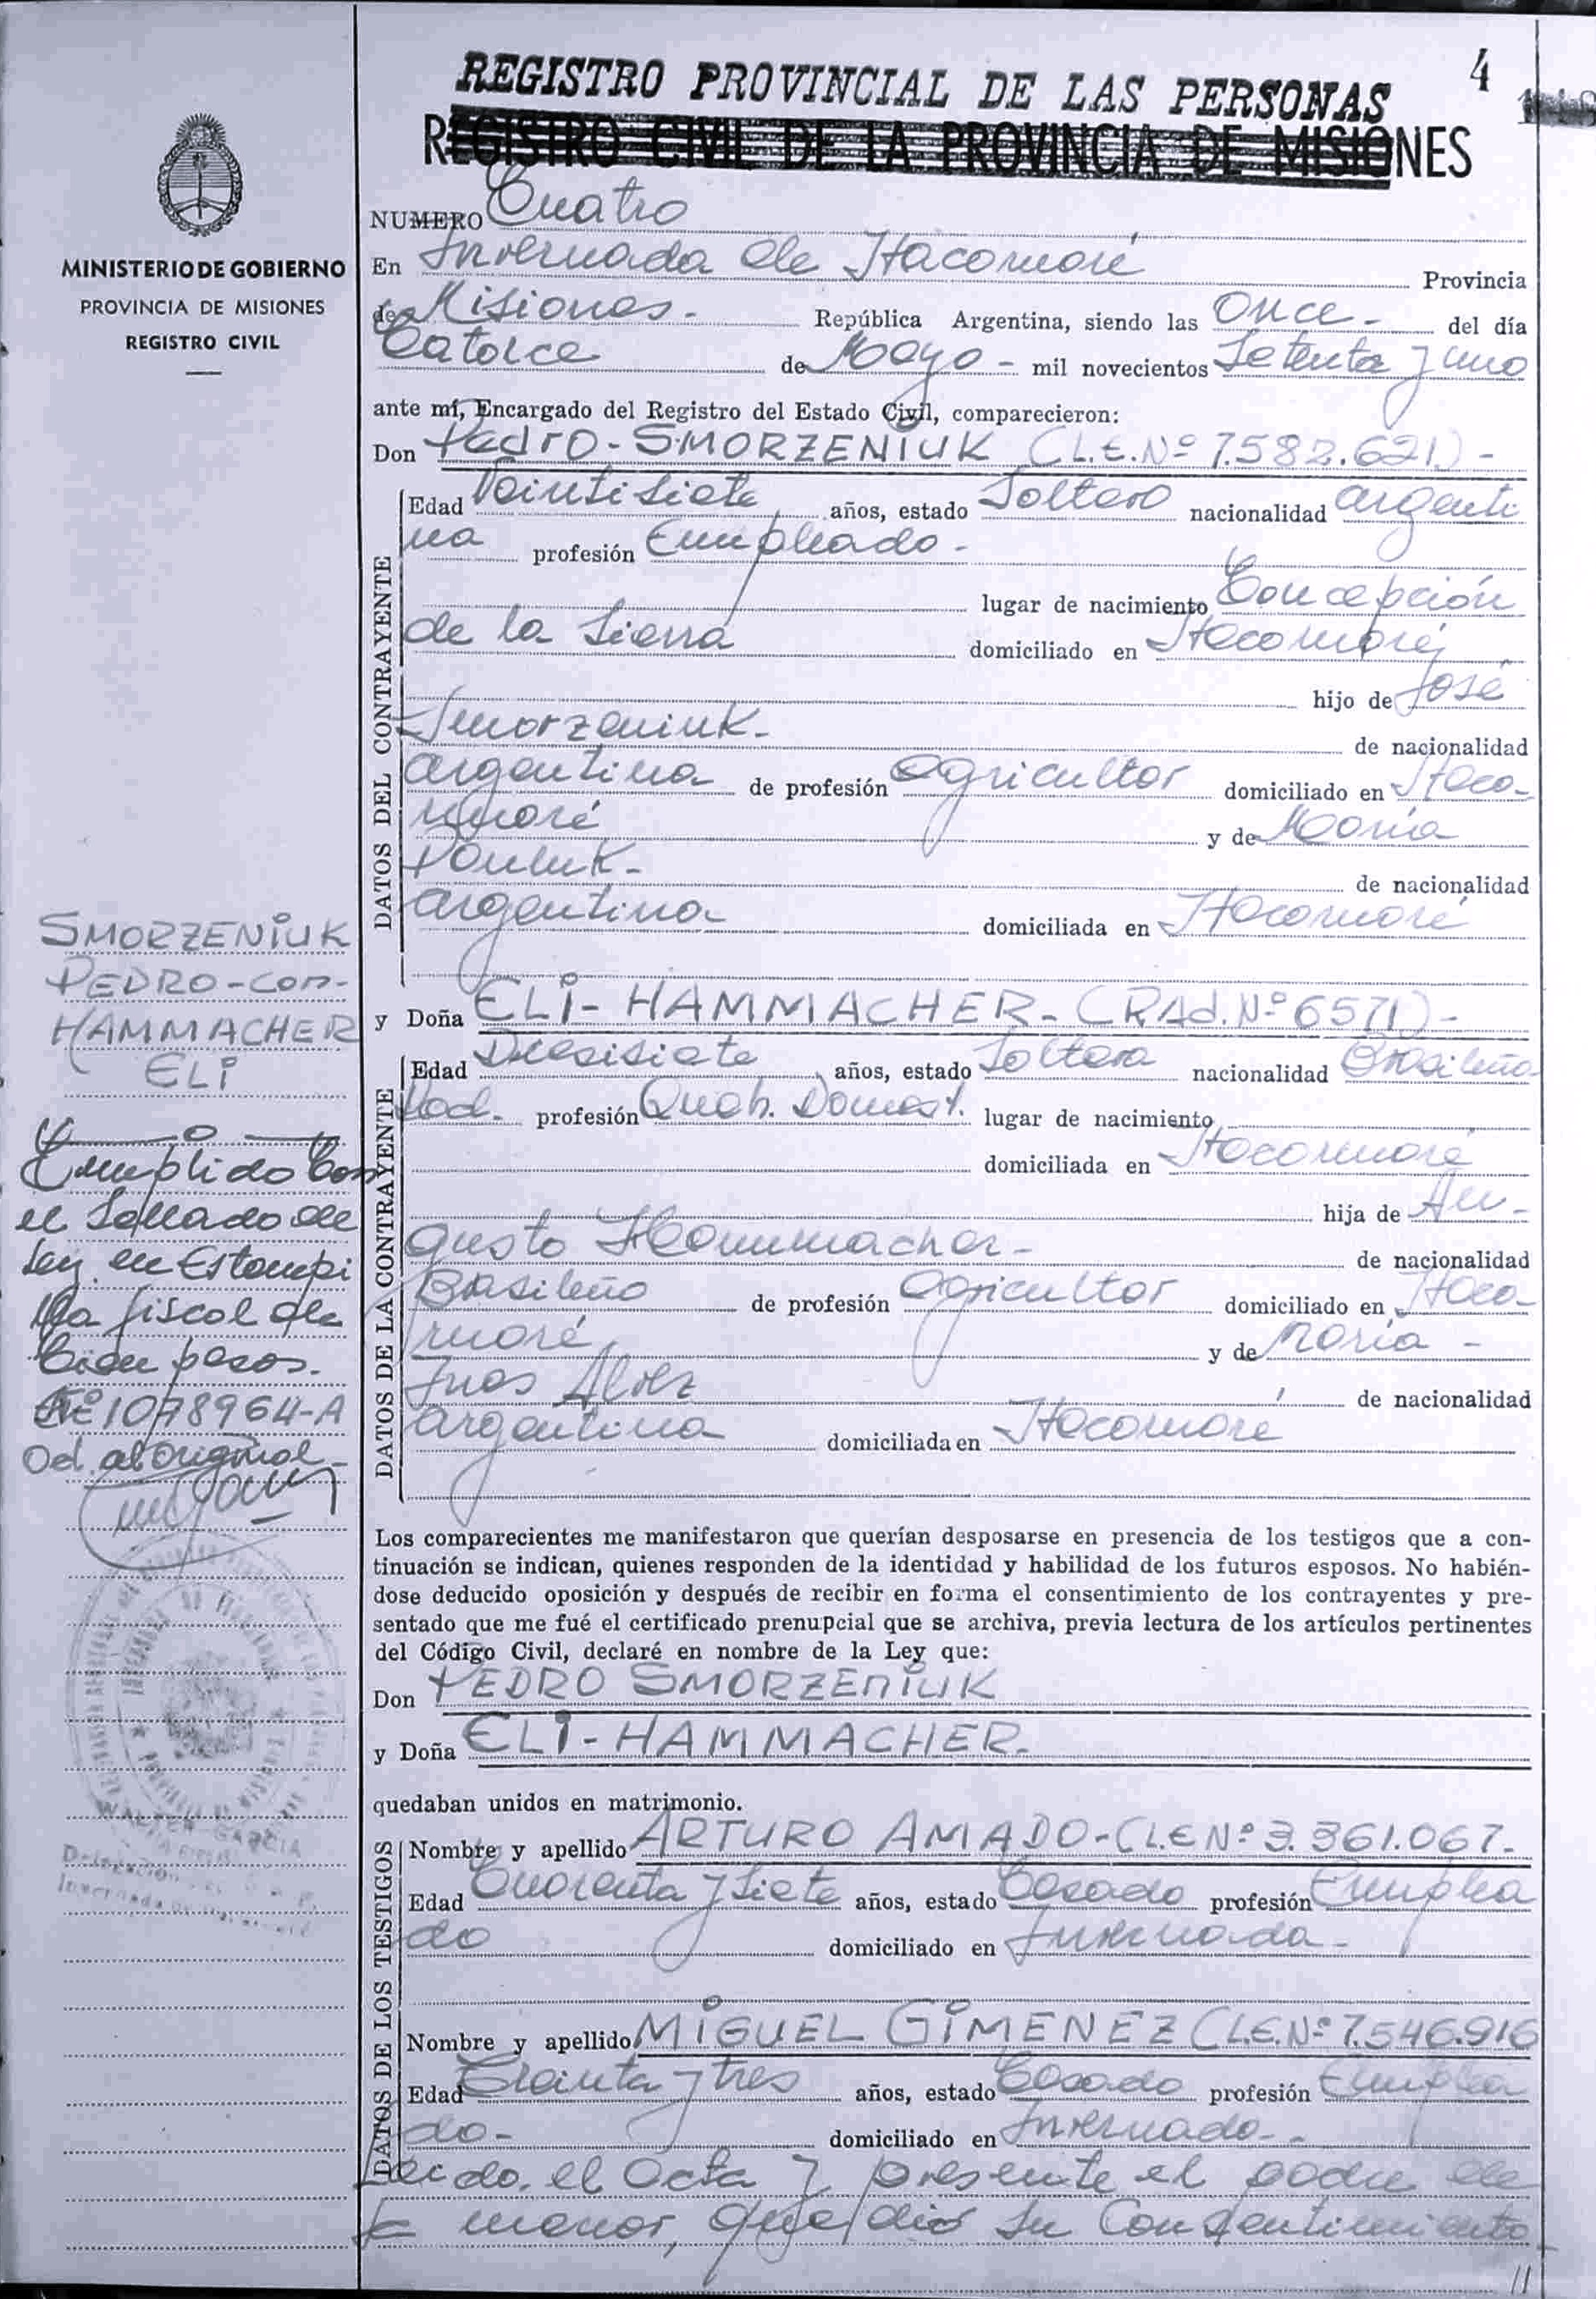 REGISTRO PROVINCIAL DE LAS PERSONAS
4
REGISTRO CIVIL DE LA PROVINCIA DE MISIONES
MINISTERIO DE GOBIERNO
PROVINCIA DE MISIONES
REGISTRO CIVIL
NUMERO Cuatro
En Invernada de Itacoruaré Provincia
de Misiones.- República Argentina, siendo las Once.- del día
Catorce de Mayo - mil novecientos Setenta y uno
ante mí, Encargado del Registro del Estado Civil, comparecieron:
Don Pedro- SMORZENIUK (L.E.Nº 7.582.621)-
DATOS DEL CONTRAYENTE
Edad Veintisiete años, estado Soltero nacionalidad argenti
na profesión Empleado-
lugar de nacimiento Concepción
de la Sierra domiciliado en Itacoruaré,
hijo de José
Smorzeniuk- de nacionalidad
argentina de profesión agricultor domiciliado en Itaco-
ruaré y de María
de nacionalidad
argentina domiciliada en Itacoruaré
SMORZENIUK
PEDRO-con-
HAMMACHER
ELI
y Doña ELI- HAMMACHER- (RAd.Nº 6571)-
DATOS DE LA CONTRAYENTE
Edad Diesisiete años, estado Soltera nacionalidad Brasileña
profesión Queh. Domést. lugar de nacimiento
domiciliada en Itacoruaré
hija de Au-
gusto Hammacher- de nacionalidad
Brasileño de profesión agricultor domiciliado en Itaco-
ruaré y de María -
Ines Alvez de nacionalidad
argentina domiciliada en Itacoruaré
Cumplido Con
el Sellado de
Ley en Estampi
lla fiscal de
Cien pesos.
Nº 1078964-A
Ad. al Original-
Los comparecientes me manifestaron que querían desposarse en presencia de los testigos que a con-
tinuación se indican, quienes responden de la identidad y habilidad de los futuros esposos. No habién-
dose deducido oposición y después de recibir en forma el consentimiento de los contrayentes y pre-
sentado que me fué el certificado prenupcial que se archiva, previa lectura de los artículos pertinentes
del Código Civil, declaré en nombre de la Ley que:
Don PEDRO SMORZENIUK
y Doña ELI-HAMMACHER.
quedaban unidos en matrimonio.
WALTER GARCIA
DATOS DE LOS TESTIGOS
Nombre y apellido ARTURO AMADO-(L.E Nº 3.361.067.-
Edad Cuarenta y Siete años, estado Casado profesión Emplea
do domiciliado en Invernada-
Nombre y apellido MIGUEL GIMENEZ (L.E.Nº 7.546.916
Edad Treinta y tres años, estado Casado profesión Emplea
do- domiciliado en Invernada-
Leida el Acta y presente el padre de
la menor, que dió su Consentimiento
//